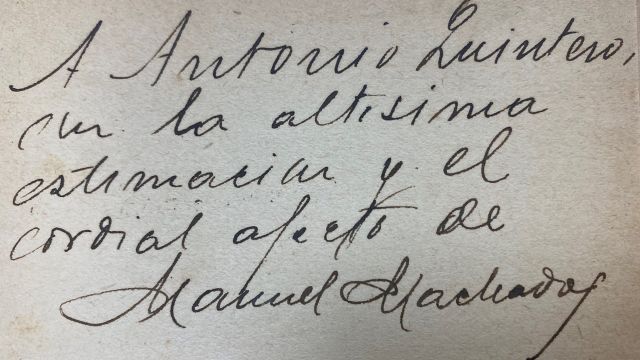 A Antonio Quintero,
con la altisima
estimacion y el
cordial afecto de
Manuel Machado